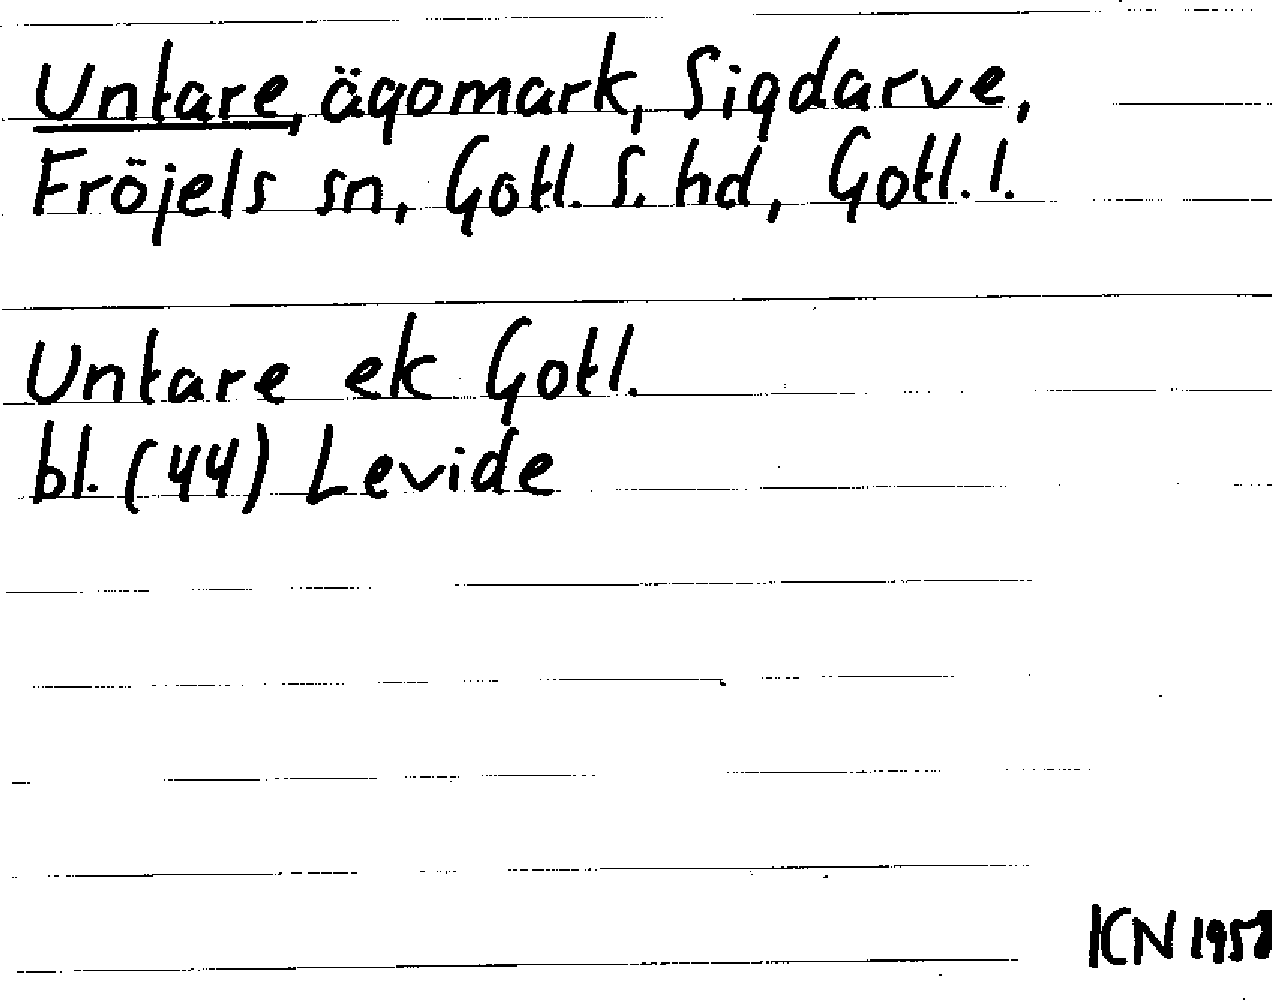 Untare, ägomark, Sigdarve,
Fröjels sn, Gotl. S. hd, Gotl. l.
Untare ek Gotl.
bl. (44) Levide
KN